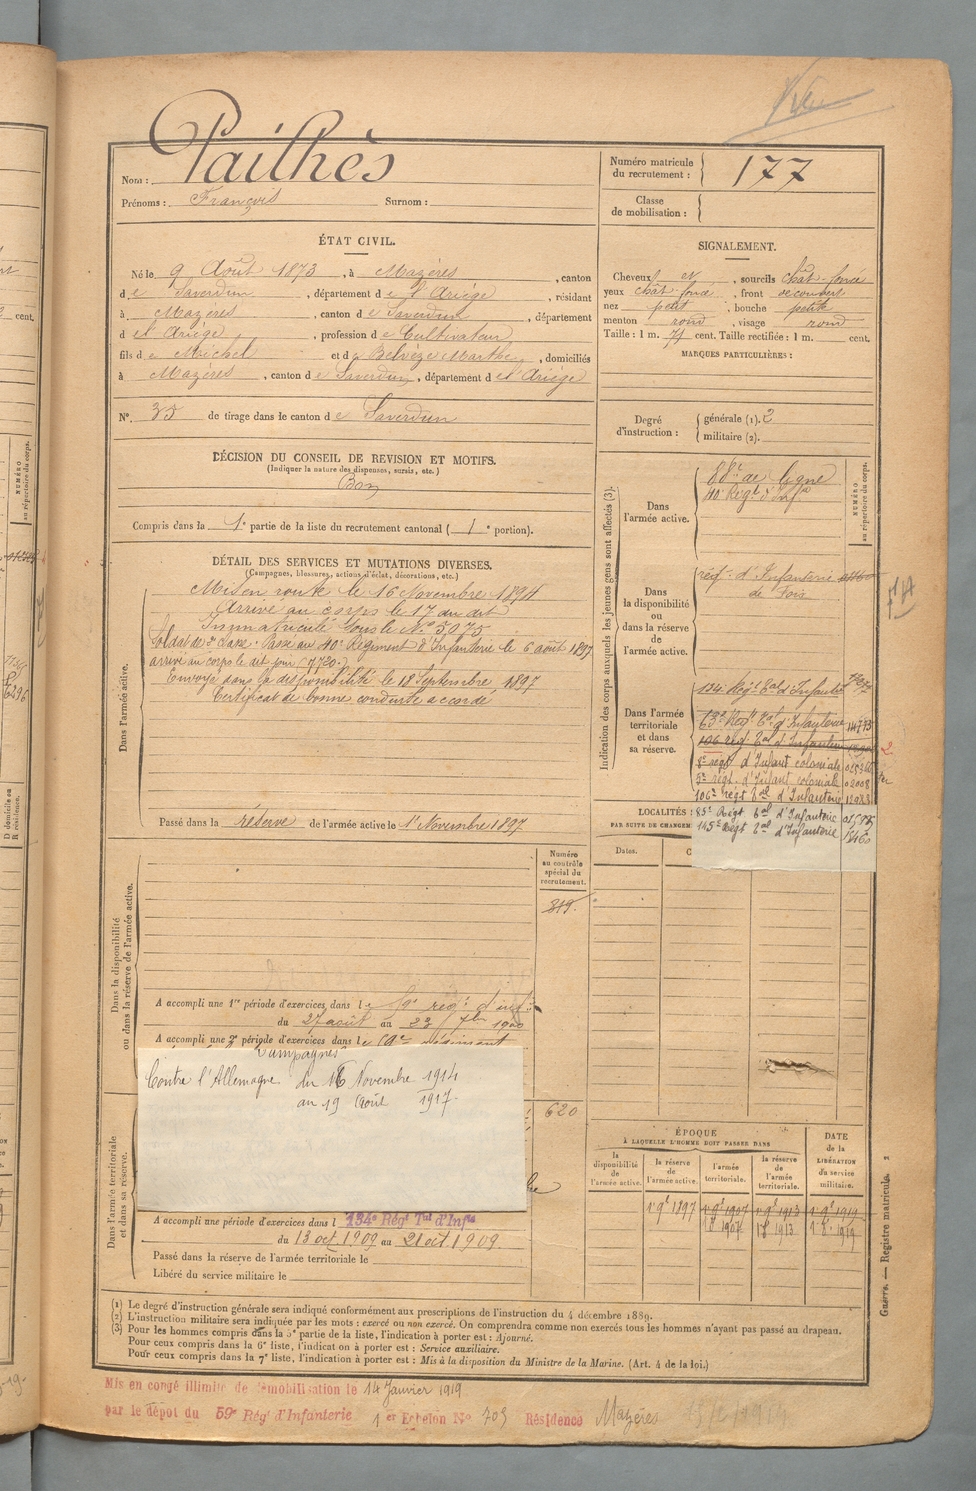 Nom : Pailhès
Prénoms : François Surnom :
Numéro matricule du recrutement : 177
Classe de mobilisation :
ÉTAT CIVIL.
Né le 9 Août 1873, à Mazères, canton
de Saverdun, département de l'Ariège, résidant
à Mazères, canton de Saverdun, département
de l'Ariège, profession de Cultivateur
fils de Michel et de Belvèze Marthe, domiciliés
à Mazères, canton de Saverdun, département de l'Ariège
N° 35 de tirage dans le canton de Saverdun
SIGNALEMENT.
Cheveux et, sourcils chât-foncé
yeux chât-foncé, front découvert
nez petit, bouche petite
menton rond, visage rond
Taille : 1 m. 71 cent. Taille rectifiée : 1 m. cent.
MARQUES PARTICULIÈRES :
Degré d'instruction : générale (1). 2
militaire (2).
DÉCISION DU CONSEIL DE REVISION ET MOTIFS.
(Indiquer la nature des dispenses, sursis, etc.)
Bon
Compris dans la 1e partie de la liste du recrutement cantonal ( 1e portion).
DÉTAIL DES SERVICES ET MUTATIONS DIVERSES.
(Campagnes, blessures, actions d'éclat, décorations, etc.)
Dans l'armée active.
Mis en route le 16 Novembre 1894
Arrivé au corps le 17 du dit
Immatriculé sous le N° 5075
Soldat de 2e classe. Passé au 40e Régiment d'Infanterie le 6 août 1897
arrivé au corps le dit jour (7720.)
Envoyé dans la disponibilité le 18 Septembre 1897
Certificat de bonne conduite accordé
Passé dans la réserve de l'armée active le 1er Novembre 1897
Indication des corps auxquels les jeunes gens sont affectés (3).
NUMÉRO au répertoire du corps.
Dans l'armée active.
88e de ligne
40e Régt d'Infie
Dans la disponibilité ou dans la réserve de l'armée active.
régt d'Infanterie
de Foix
Dans l'armée territoriale et dans sa réserve.
134e Régt Tal d'Infanterie
63e Regt Tal d'Infanterie 14773
106 régt Tal d'Infanterie
8e regt d'Infant coloniale
5e régt d'Infant coloniale 02008
106e régt Tal d'Infanterie 12923
85e Régt Tal d'Infanterie
145e Régt Tal d'Infanterie
LOCALITÉS
PAR SUITE DE CHANGEM
Dates.
Dans la disponibilité ou dans la réserve de l'armée active.
Numéro au contrôle spécial du recrutement.
819.
A accompli une 1re période d'exercices, dans le 59e régt d'inf.
du 27 août au 23 7bre 1900
A accompli une 2e période d'exercices dans le régiment
Campagnes
Contre l'Allemagne du 16 Novembre 1914
au 19 Août 1917.
620
Dans l'armée territoriale et dans sa réserve.
A accompli une période d'exercices dans l 134e Régt Tal d'Infie
du 13 oct. 1909 au 21 oct 1909.
Passé dans la réserve de l'armée territoriale le
Libéré du service militaire le
ÉPOQUE
A LAQUELLE L'HOMME DOIT PASSER DANS
la disponibilité de l'armée active.
la réserve de l'armée active.
l'armée territoriale.
la réserve de l'armée territoriale.
DATE de la LIBÉRATION du service militaire.
1er 9bre 1897 1er 9bre 1907 1er 9bre 1913 1er 9bre 1919
1907 1913 1919
Guerre. — Registre matricule. 2
(1) Le degré d'instruction générale sera indiqué conformément aux prescriptions de l'instruction du 4 décembre 1889.
(2) L'instruction militaire sera indiquée par les mots : exercé ou non exercé. On comprendra comme non exercés tous les hommes n'ayant pas passé au drapeau.
(3) Pour les hommes compris dans la 5e partie de la liste, l'indication à porter est : Ajourné.
Pour ceux compris dans la 6e liste, l'indication à porter est : Service auxiliaire.
Pour ceux compris dans la 7e liste, l'indication à porter est : Mis à la disposition du Ministre de la Marine. (Art. 4 de la loi.)
Mis en congé illimité de démobilisation le 14 Janvier 1919
par le dépôt du 59e Régt d'Infanterie 1er Echelon N° 705 Résidence Mazères